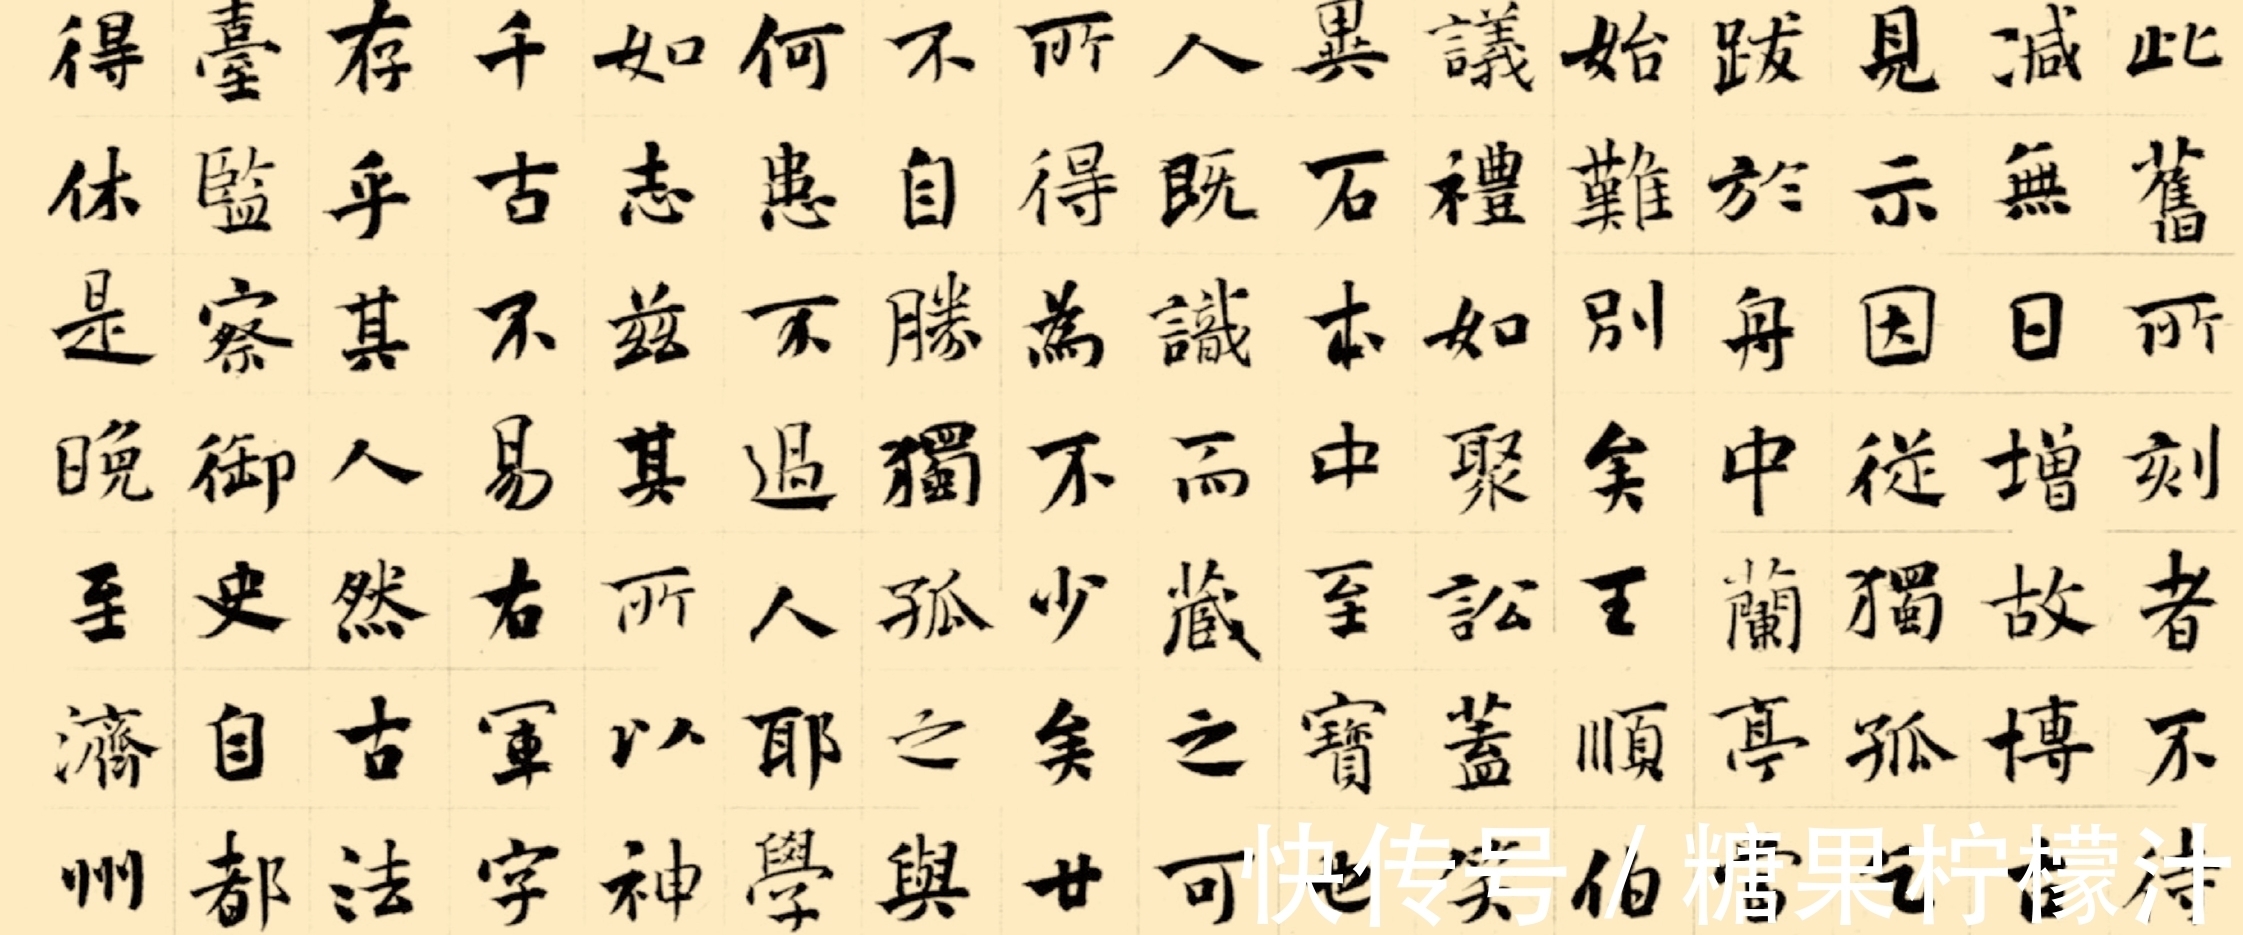 此舊所刻者不待
減無日增故博古
見示因從獨孤乞
跋於舟中蘭亭當
始難別矣王順伯
議禮如聚訟蓋笑
異石本中至寶也
人既識而藏之可
所得為不少矣廿
不自勝獨孤之與
何患不過人耶學
如志茲其所以神
千古不易右軍字
存乎其人然古法
臺監察御史自都
得休是晚至濟州
快传号 / 糖果柠檬汁